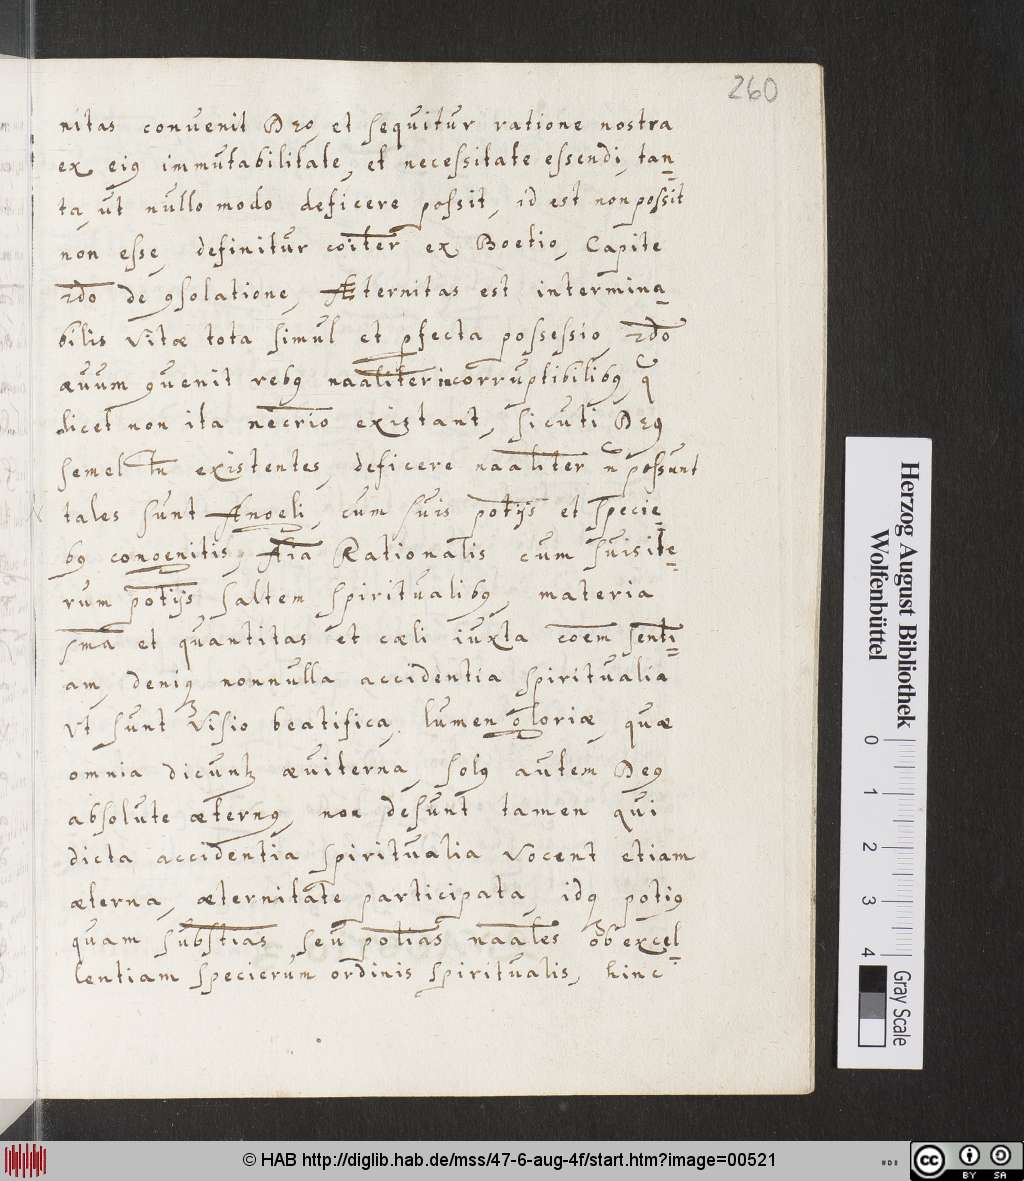 260
nitas conuenit Deo, et sequitur ratione nostra
ex eiꝰ immutabilitate, et necessitate essendi, tan=
ta, ut nullo modo deficere possit, id est non possit
non esse, definitur coiter ex Boetio, Capite
2do de ꝯsolatione, Æternitas est intermina=
bilis vitæ tota simul et ꝑfecta possessio, 2do
æuum ꝯuenit rebꝰ naaliter incorruptibilibꝰ, q
licet non ita necrio existant, sicuti Deꝰ
semel tn existentes, deficere naaliter n possunt
tales sunt Angeli, cum suis potijs et specie=
bꝰ congenitis, Aia Rationalis cum suis ite=
rum potijs saltem spiritualibꝰ, materia
sma et quantitas et cæli iuxta coem senti=
am, deniq nonnulla accidentia spiritualia
ut sunt Visio beatifica, lumen gloriæ, quæ
omnia dicuntꝛ æuiterna, solꝰ autem Deꝰ
absolute æternꝰ, non desunt tamen qui
dicta accidentia spiritualia vocent etiam
æterna, æternitate participata, idq potiꝰ
quam substias seu potias naales ob excel=
lentiam specierum ordinis spiritualis, hinc
Herzog August Bibliothek
Wolfenbüttel
0 1 2 3 4
Gray Scale
© HAB http://diglib.hab.de/mss/47-6-aug-4f/start.htm?image=00521
cc BY SA